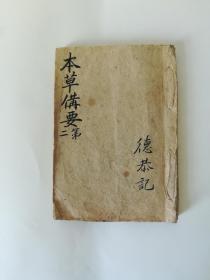 本草備要
第二
德恭記